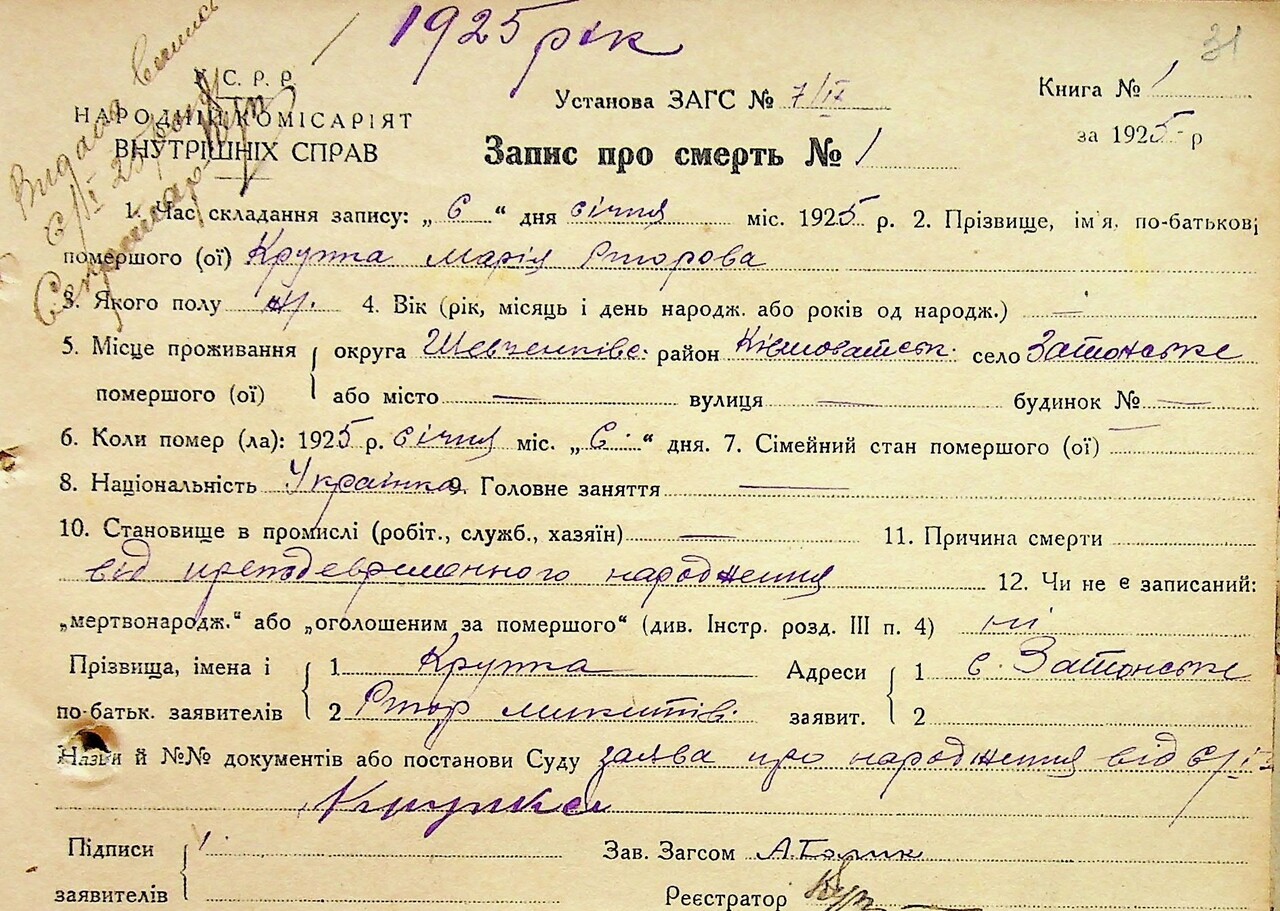 1925 рік
31
У. С. Р. Р.
НАРОДНІЙ КОМІСАРІЯТ
ВНУТРІШНІХ СПРАВ
Установа ЗАГС № 7/IX
Книга № 1
за 1925 р
Запис про смерть № 1
1. Час складання запису: „ 6 “ дня січня міс. 1925 р. 2. Прізвище, ім'я, по-батькові
помершого (ої) Крупка Марія
3. Якого полу ж. 4. Вік (рік, місяць і день народж. або років од народж.) —
5. Місце проживання помершого (ої) округа Шевченківс. район село Затонське
або місто — вулиця — будинок № —
6. Коли помер (ла): 1925 р. січня міс. „ 6 “ дня. 7. Сімейний стан помершого (ої) —
8. Національність Українка 9. Головне заняття —
10. Становище в промислі (робіт., служб., хазяїн) — 11. Причина смерти
від народження 12. Чи не є записаний:
„мертвонародж.“ або „оголошеним за помершого“ (див. Інстр. розд. III п. 4) ні
Прізвища, імена і по-батьк. заявителів 1 Крупка
2 Микитів.
Адреси заявит. 1 с. Затонське
2
Назви й №№ документів або постанови Суду заява про народження від 6/I
Крупка
Підписи заявителів
Зав. Загсом
Реєстратор